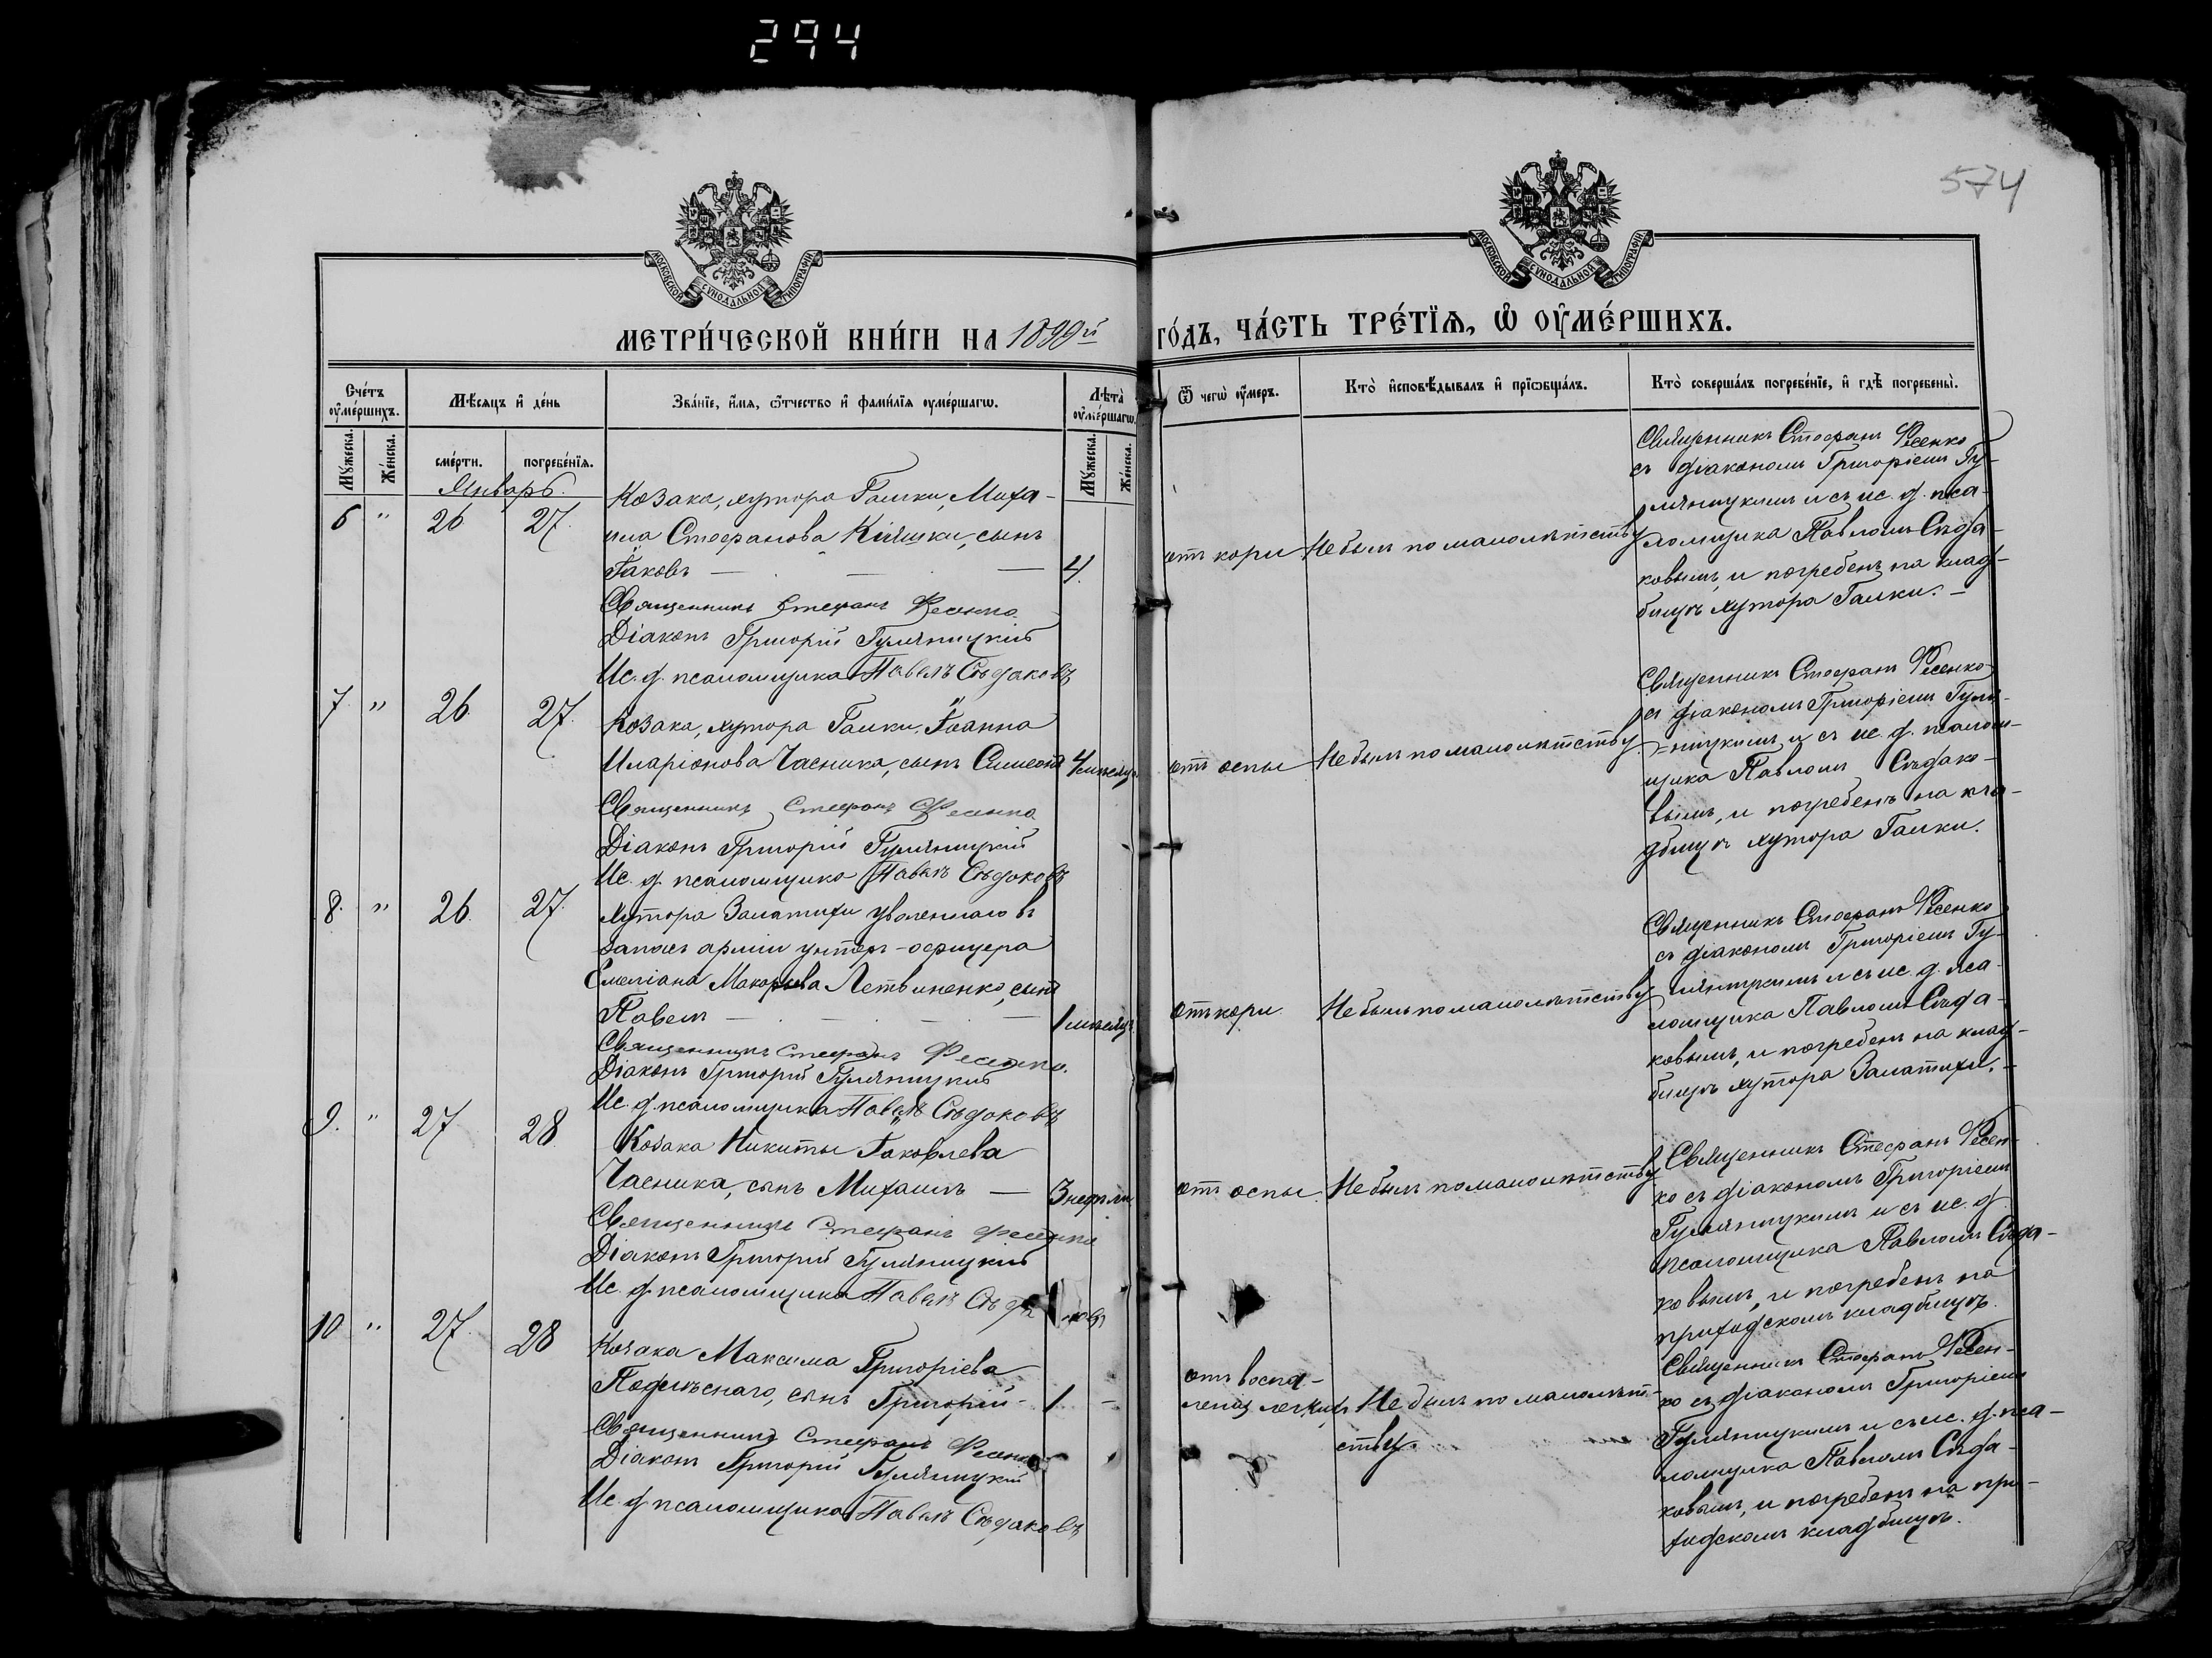 294
574
МОСКОВСКОЙ СѴНОДАЛЬНОЙ ТИПОГРАФІИ
МОСКОВСКОЙ СѴНОДАЛЬНОЙ ТИПОГРАФІИ
МЕТРИ́ЧЕСКОЙ КНИ́ГИ НА 1899й ГО́ДЪ, ЧА́СТЬ ТРЕ́ТЇѦ, Ѡ ОУМЕ́РШИХЪ.
Сче́тъ оуме́ршихъ.
Мѣ́сяцъ и де́нь
Зва́нїе, и́мя, ѿтчество и фами́лїя оуме́ршагѡ.
Лѣта̀ оуме́ршагѡ.
Ѿ чегѡ̀ оу́меръ.
Кто̀ исповѣ́дывалъ и прїѡбща́лъ.
Кто̀ соверша́лъ погребе́нїе, и гдѣ̀ погребены̀.
Мꙋ́жеска.
Же́нска.
сме́рти.
погребе́нїя.
Мꙋ́жеска.
Же́нска.
Январь.
6 " 26 27.
Козака, хутора Галки, Миха-
ила Стефанова Кіяшки, сынъ
Іаковъ — — — 4.
Священникъ Стефанъ Фесенко
Діаконъ Григорій Гуляницкій
Ис. д. псаломщика Павелъ Сѣдаковъ
отъ кори
Не былъ по малолѣтству
Священникъ Стефанъ Фесенко
съ діакономъ Григоріемъ Гу-
ляницкимъ и съ ис. д. пса-
ломщика Павломъ Сѣда-
ковымъ, и погребенъ на клад-
бищѣ хутора Галки. —
7. " 26. 27.
Козака, хутора Галки, Іоанна
Иларіонова Часника, сынъ Симеонъ 4 мѣсяц.
Священникъ Стефанъ Фесенко
Діаконъ Григорій Гуляницкій
Ис. д. псаломщика Павелъ Сѣдаковъ
отъ оспы
Не былъ по малолѣтству
Священникъ Стефанъ Фесенко
съ діакономъ Григоріемъ Гуля-
=ницкимъ и съ ис. д. псалом-
щика Павломъ Сѣдако-
вымъ, и погребенъ на кла-
дбищѣ хутора Галки.
8. " 26. 27.
Хутора Залатихи уволеннаго въ
запасъ арміи унтеръ-офицера
Емеліана Макарова Летвиненко, сынъ
Павелъ — — — — 1 мѣсяцъ
Священникъ Стефанъ Фесенко.
Діаконъ Григорій Гуляницкій
Ис. д. псаломщика Павелъ Сѣдаковъ
отъ кори
Не былъ по малолѣтству
Священникъ Стефанъ Фесенко
съ діакономъ Григоріемъ Гу-
ляницкимъ и съ ис. д. пса-
ломщика Павломъ Сѣда-
ковымъ, и погребенъ на клад-
бищѣ хутора Залатихи. —
9. " 27 28
Козака Никиты Іаковлева
Часника, сынъ Михаилъ — 3 недѣли
Священникъ Стефанъ Фесенко
Діаконъ Григорій Гуляницкій
Ис. д. псаломщика Павелъ Сѣдаковъ
отъ оспы.
Не былъ по малолѣтству
Священникъ Стефанъ Фесен-
ко съ діакономъ Григоріемъ
Гуляницкимъ и съ ис. д.
псаломщика Павломъ Сѣда-
ковымъ, и погребенъ на
приходскомъ кладбищѣ.
10 " 27. 28
Козака Максима Григоріева
сынъ Григорій - 1 -
Священникъ Стефанъ Фесенко
Діаконъ Григорій Гуляницкій
Ис. д. псаломщика Павелъ Сѣдаковъ
отъ воспа-
ленія легкихъ
Не былъ по малолѣт-
ству.
Священникъ Стефанъ Фесен-
ко съ діакономъ Григоріемъ
Гуляницкимъ и съ ис. д. пса-
ломщика Павломъ Сѣда-
ковымъ, и погребенъ на при-
ходскомъ кладбищѣ.